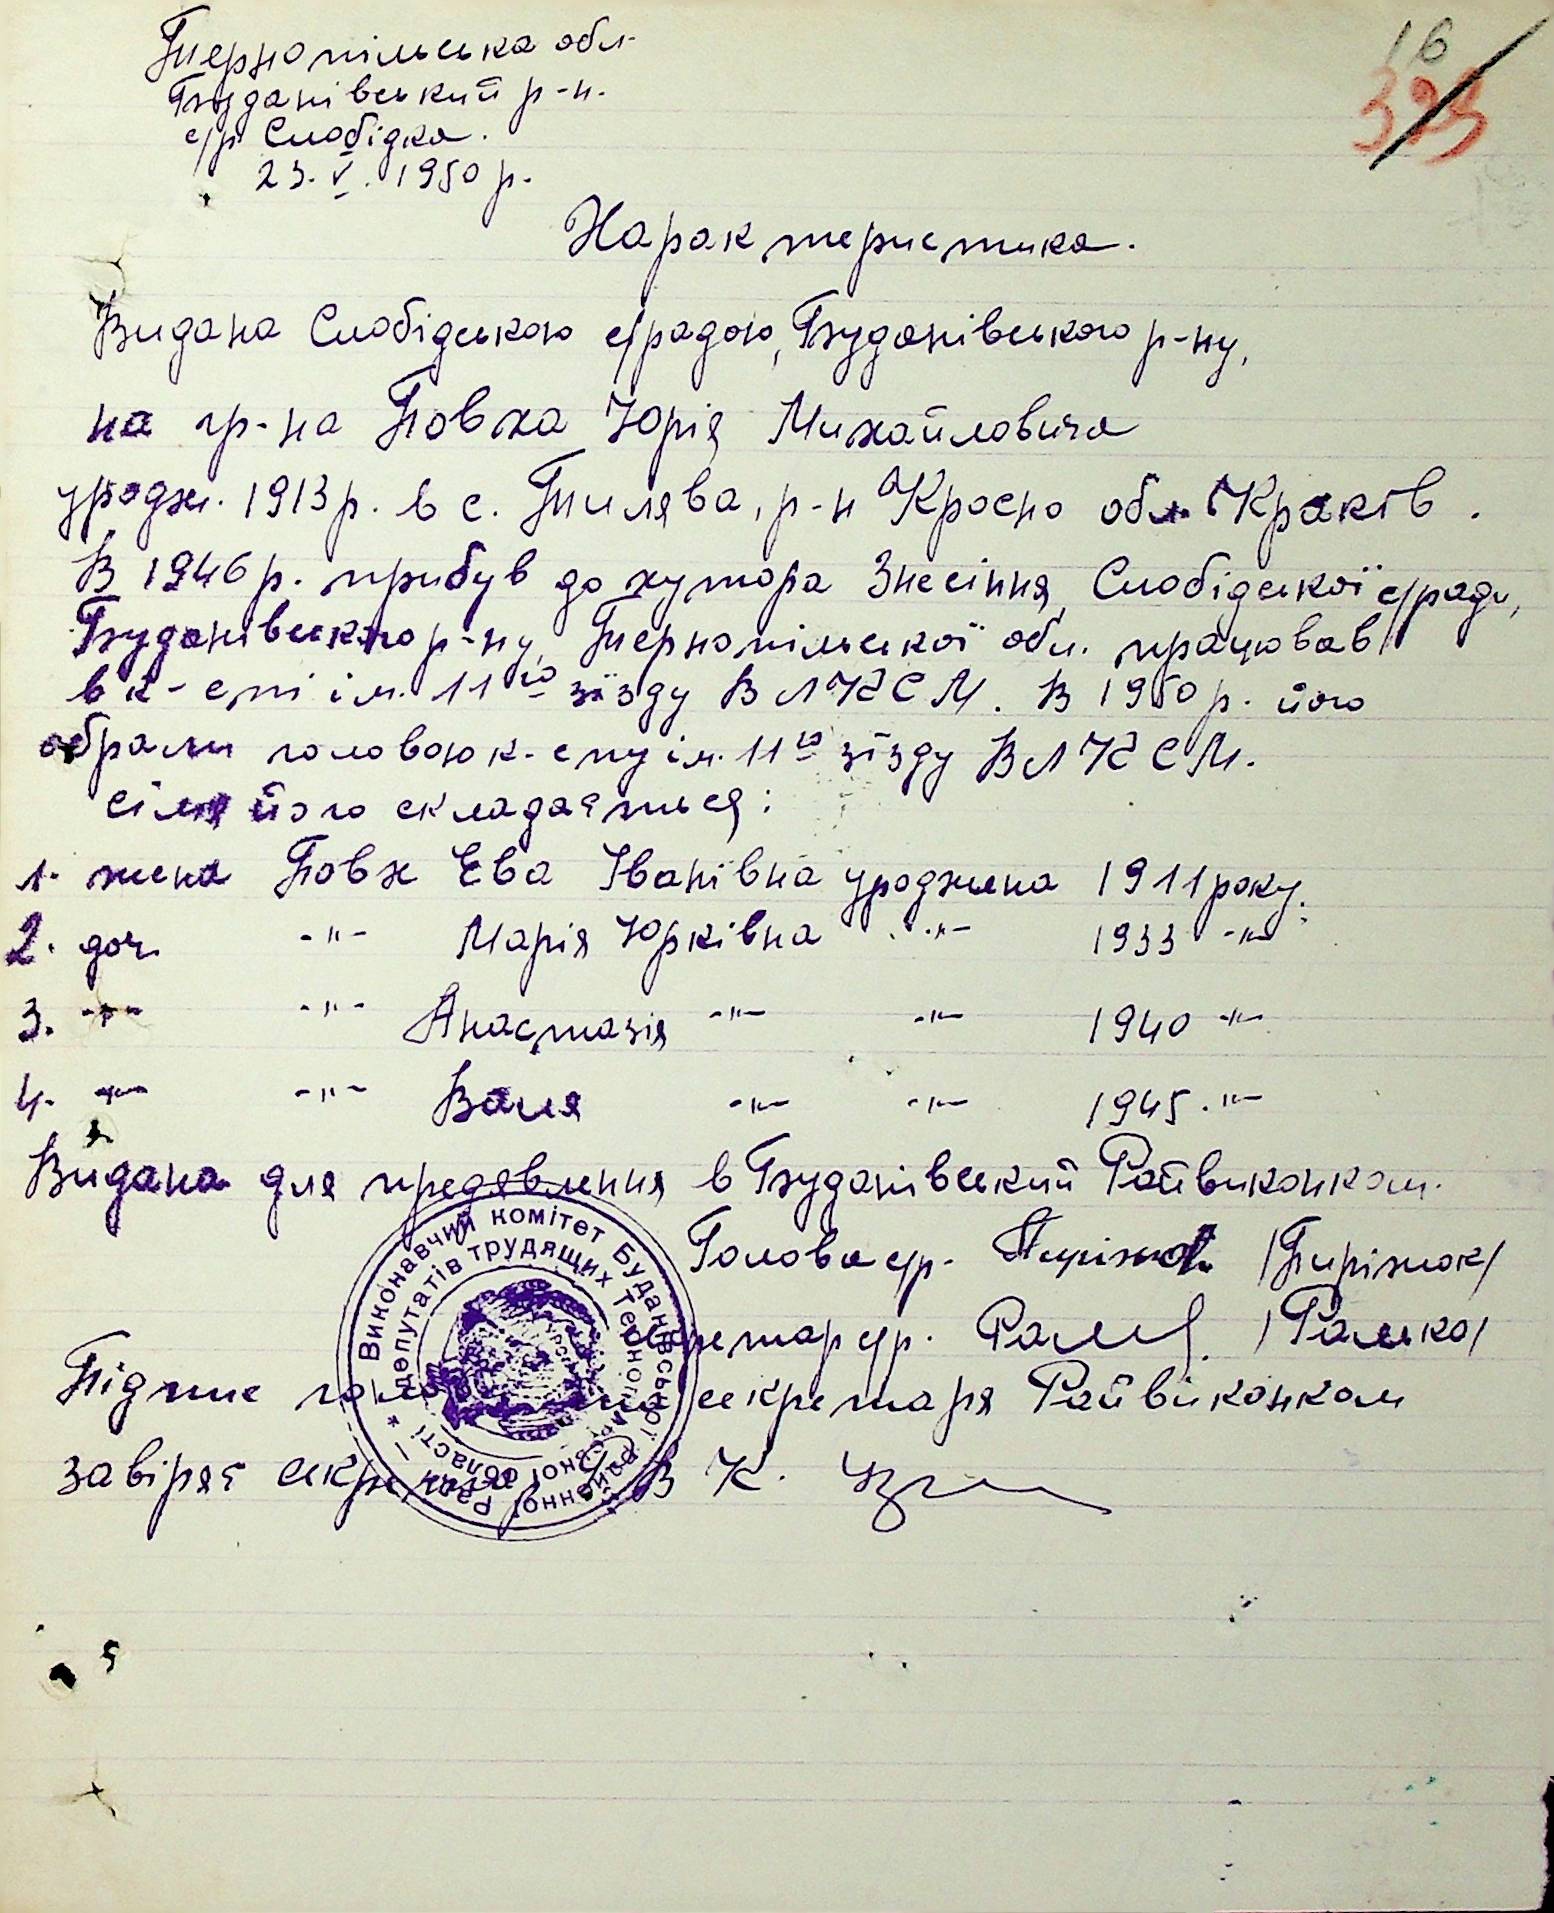 16
323
Тернопільська обл.
Буданівський р-н.
с/р Слобідка.
23. V. 1950 р.
Характеристика.
Видана Слобідською с/радою, Буданівського р-ну,
на гр-на Повха Юрія Михайловича
уродж. 1913 р. в с. Тилява, р-н Кросно обл. Краків.
В 1946 р. прибув до хутора Знесіння, Слобідської с/ради,
Буданівського р-ну, Тернопільської обл. працював
в к-спі ім. 11го зїзду ВЛКСМ. В 1950 р. його
обрали головою к-спу ім. 11го зїзду ВЛКСМ.
Сімя його складається:
1. жена Повх Ева Іванівна уроджена 1911 року.
2. доч. -"- Марія Юрківна -"- 1933 -"-
3. -"- -"- Анастазія -"- -"- 1940 -"-
4. -"- -"-Валя -"- -"- 1945. -"-
Видана для предявлення в Буданівський Райвиконком.
Голова с/р. /Пиріжок/
Секретар с/р. /Ралько/
Підпис голови секретаря Райвиконком
завіряє секретар РВК.
Виконавчий комітет Буданівської районної Ради
депутатів трудящих Тернопільської області